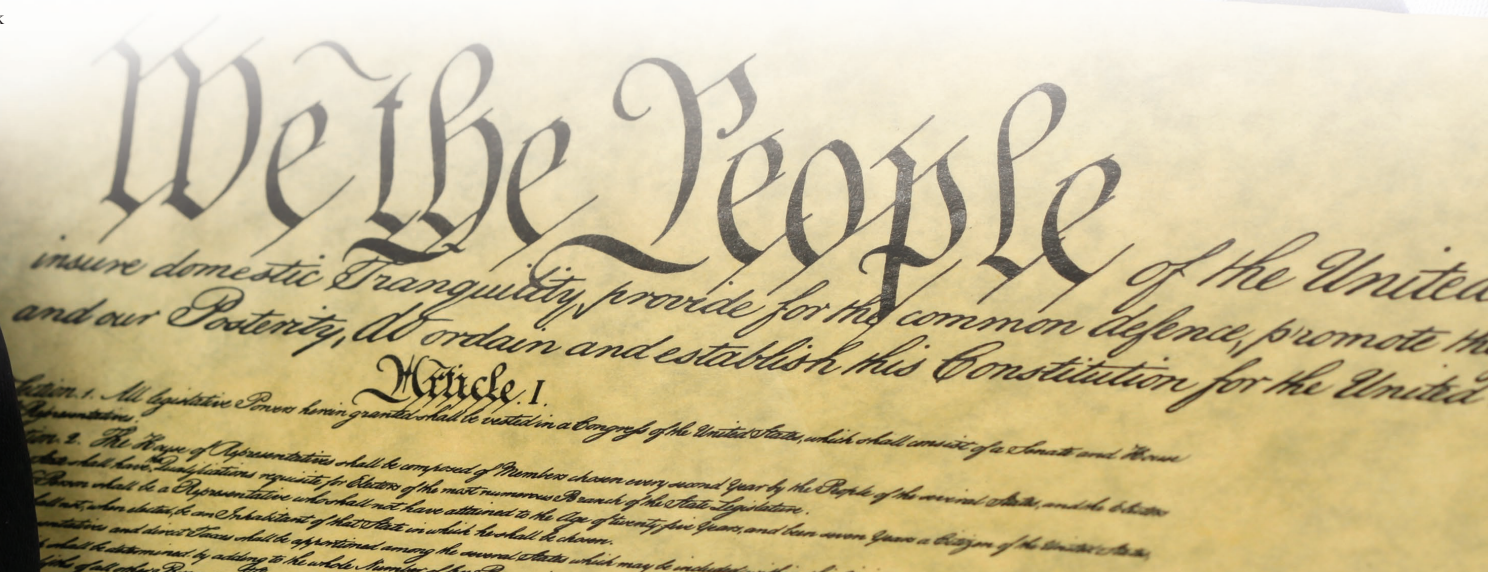 We the People of the United
insure domestic Tranquility, provide for the common defence, promote the
and our Posterity, do ordain and establish this Constitution for the United
Article. I.
Section. 1. All legislative Powers herein granted shall be vested in a Congress of the United States, which shall consist of a Senate and House
Representatives.
2. The House of Representatives shall be composed of Members chosen every second Year by the People of the several States, and the Electors
State shall have Qualifications requisite for Electors of the most numerous Branch of the State Legislature.
Person shall be a Representative who shall not have attained to the Age of twenty five Years, and been seven Years a Citizen of the United States,
shall not, when elected, be an Inhabitant of that State in which he shall be chosen.
and direct Taxes shall be apportioned among the several States which may be included
shall be determined by adding to the whole Number of
of all other